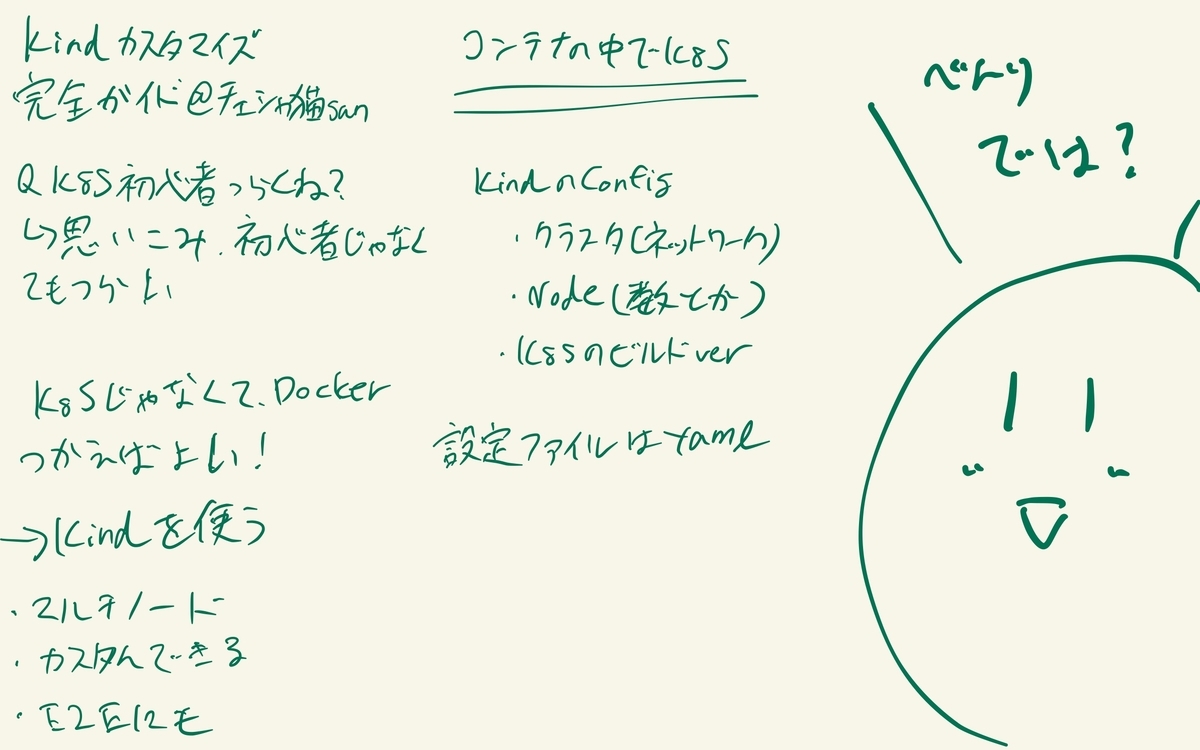 kind カスタマイズ
完全ガイド@チェシャ猫san
Q K8S初心者つらくね?
↳思いこみ. 初心者じゃなく
てもつかよい
K8Sじゃなくて、Docker
つかえばよい!
→Kindを使う
・マルチノード
・カスタムできる
・E2Eにも
コンテナの中でK8S
KindのConfig
・クラスタ(ネットワーク)
・Node(数とか)
・K8Sのビルドver
設定ファイルはYaml
べトリ
では?